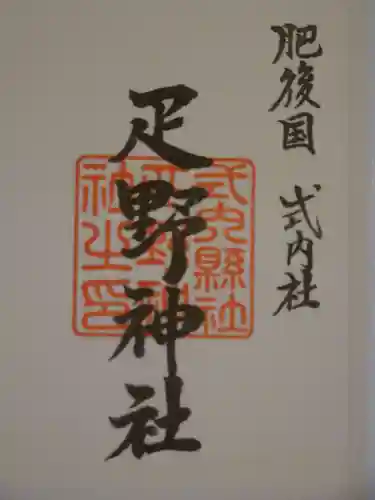 肥後国 式内社
疋野神社
式内縣社
疋野神
社之印